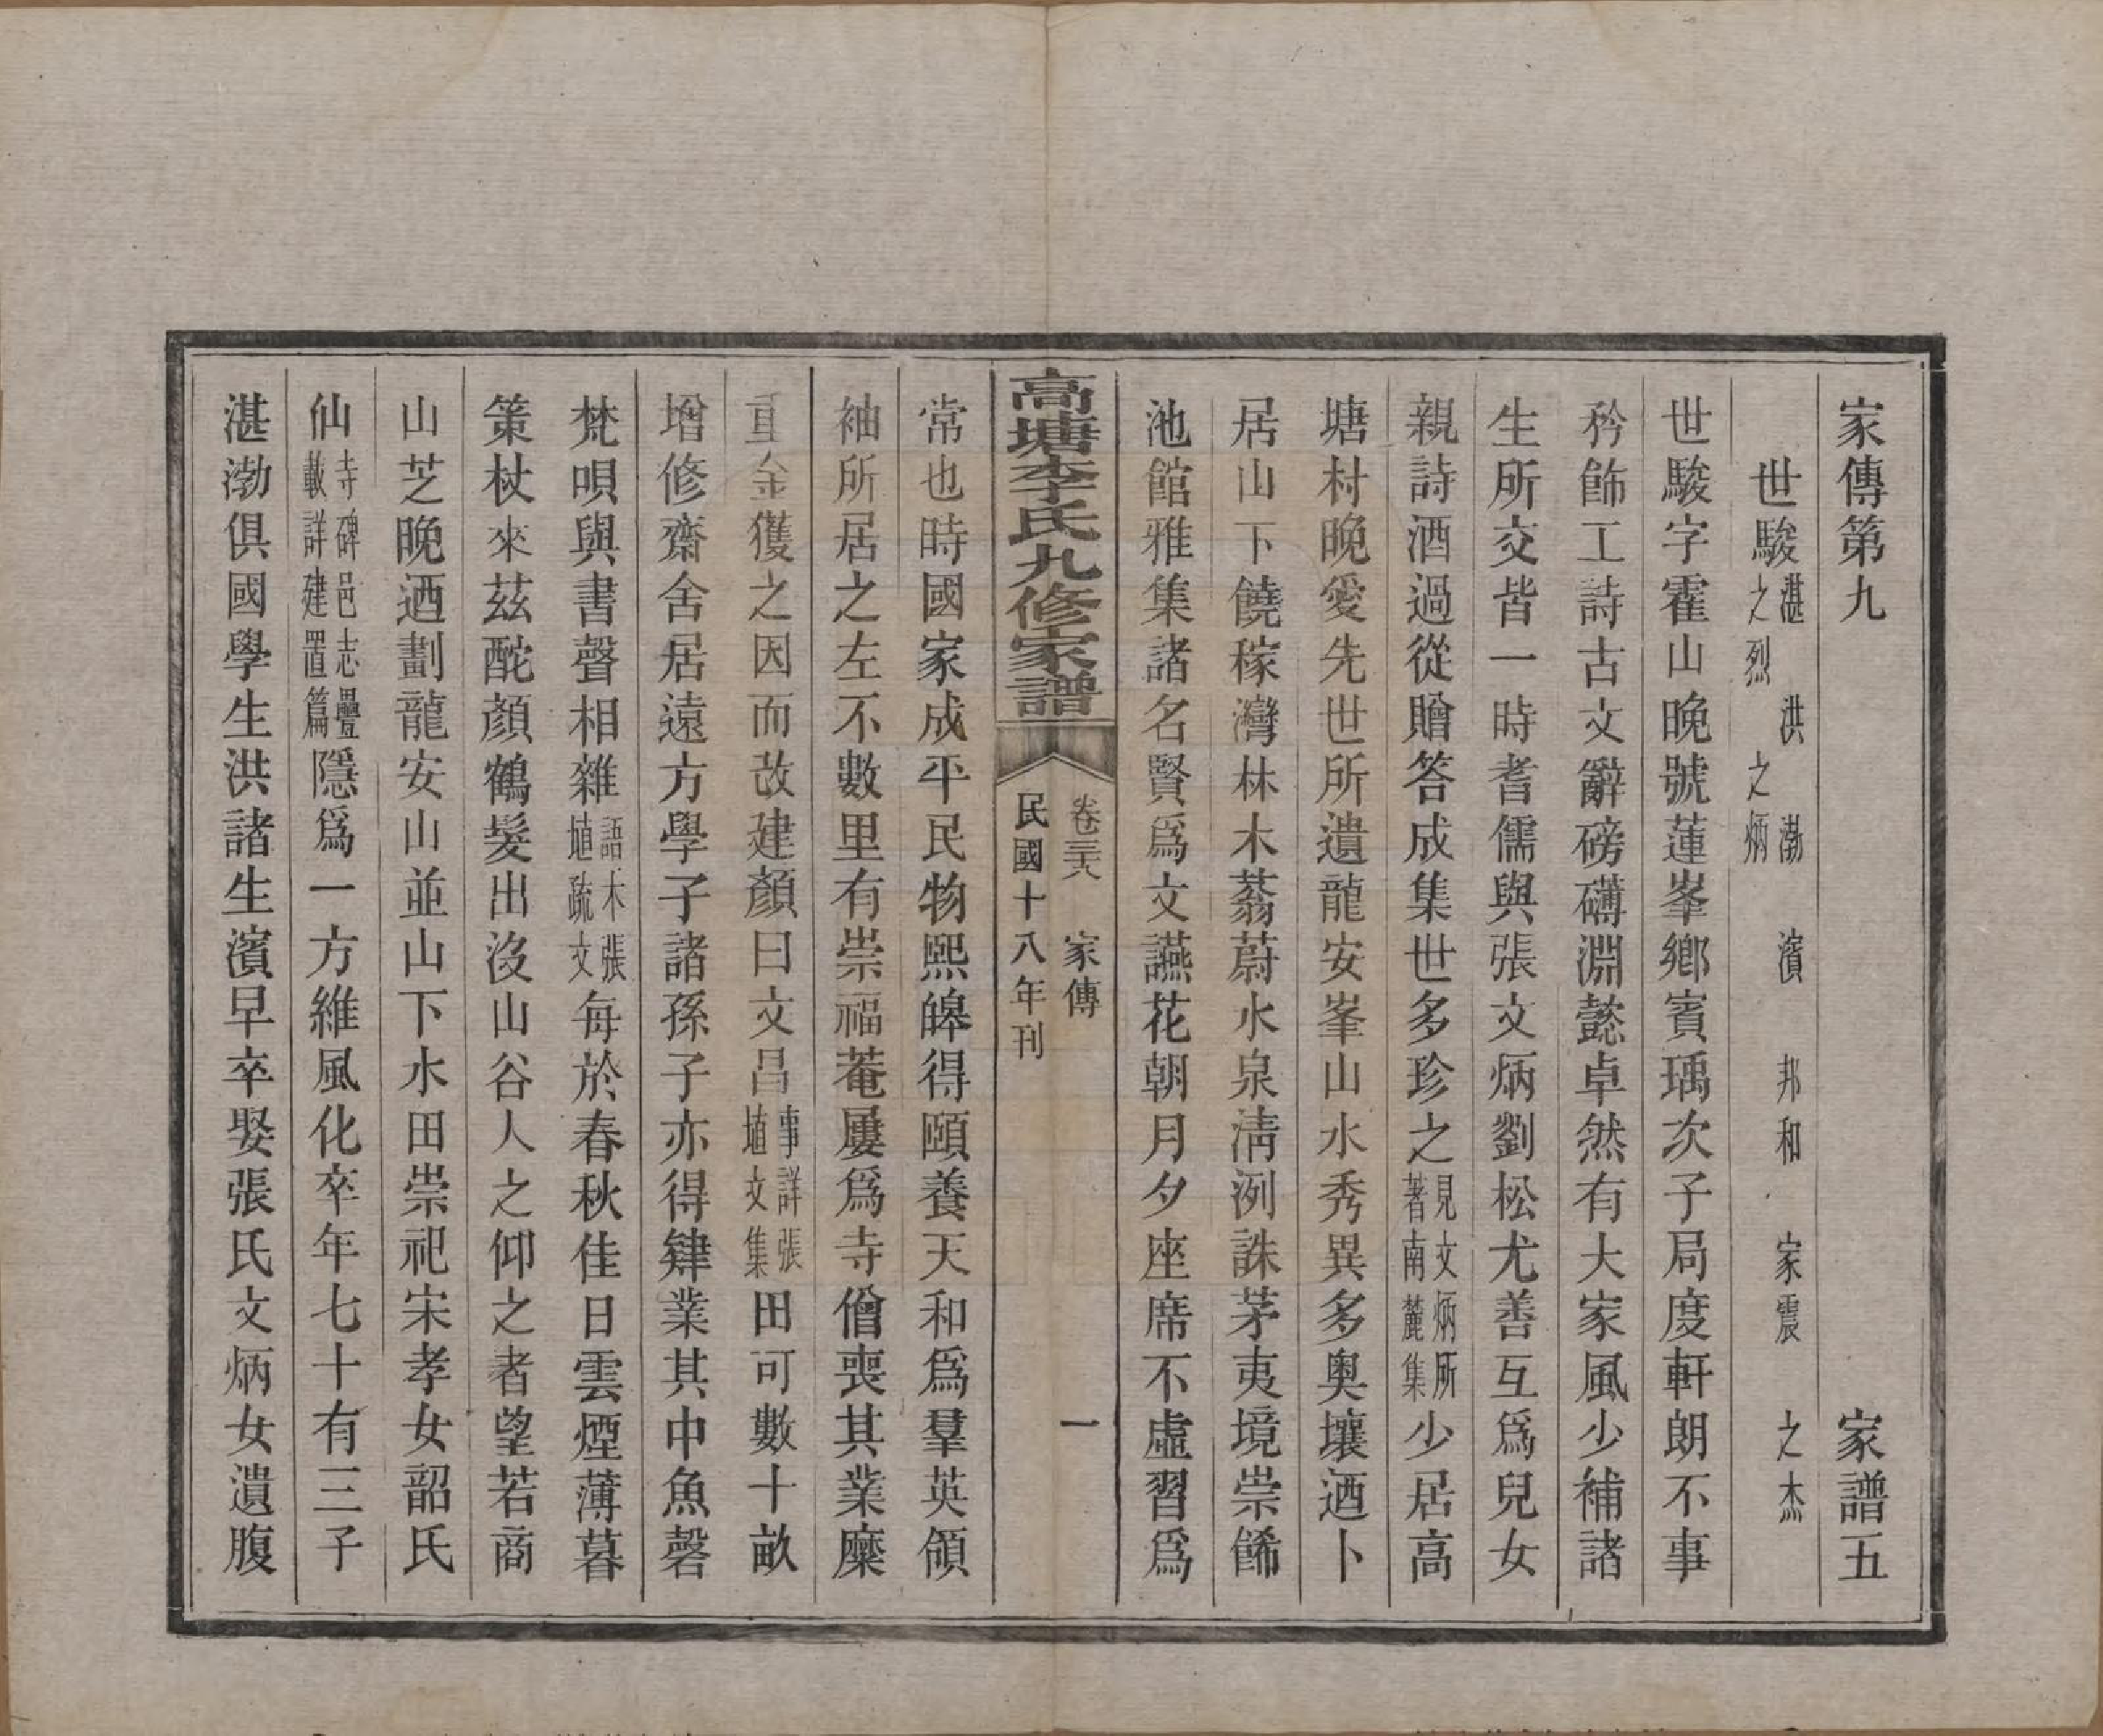 家傳第九　家譜五
世駿湛　洪　渤　濱　邦和　家震　之杰之烈　之炳
世駿字霍山晚號蓮峯鄉賓瑀次子局度軒朗不事
矜飾工詩古文辭磅礴淵懿卓然有大家風少補諸
生所交皆一時耆儒與張文炳劉松尤善互爲兒女
親詩酒過從贈答成集世多珍之見文炳所著南麓集少居高
塘村晚愛先世所遺龍安峯山水秀異多奧壤迺卜
居山下饒稼灣林木蓊蔚水泉淸洌誅茅夷境崇餙
池館雅集諸名賢爲文讌花朝月夕座席不虛習爲
高塘李氏九修家譜
卷三十六　家傳　一
民國十八年刊
常也時國家成平民物熙皞得頤養天和爲羣英領
袖所居之左不數里有崇福菴屢爲寺僧喪其業糜
重金獲之因而改建顏曰文昌事詳張埴文集田可數十畝
增修齋舍居遠方學子諸孫子亦得肄業其中魚磬
梵唄與書聲相雜語木張埴疏文每於春秋佳日雲煙薄暮
策杖來茲酡顏鶴髮出沒山谷人之仰之者望若商
山芝晚迺劃龍安山並山下水田崇祀宋孝女韶氏
仙寺碑邑志疊載詳建置篇隱爲一方維風化卒年七十有三子
湛渤俱國學生洪諸生濱早卒娶張氏文炳女遺腹